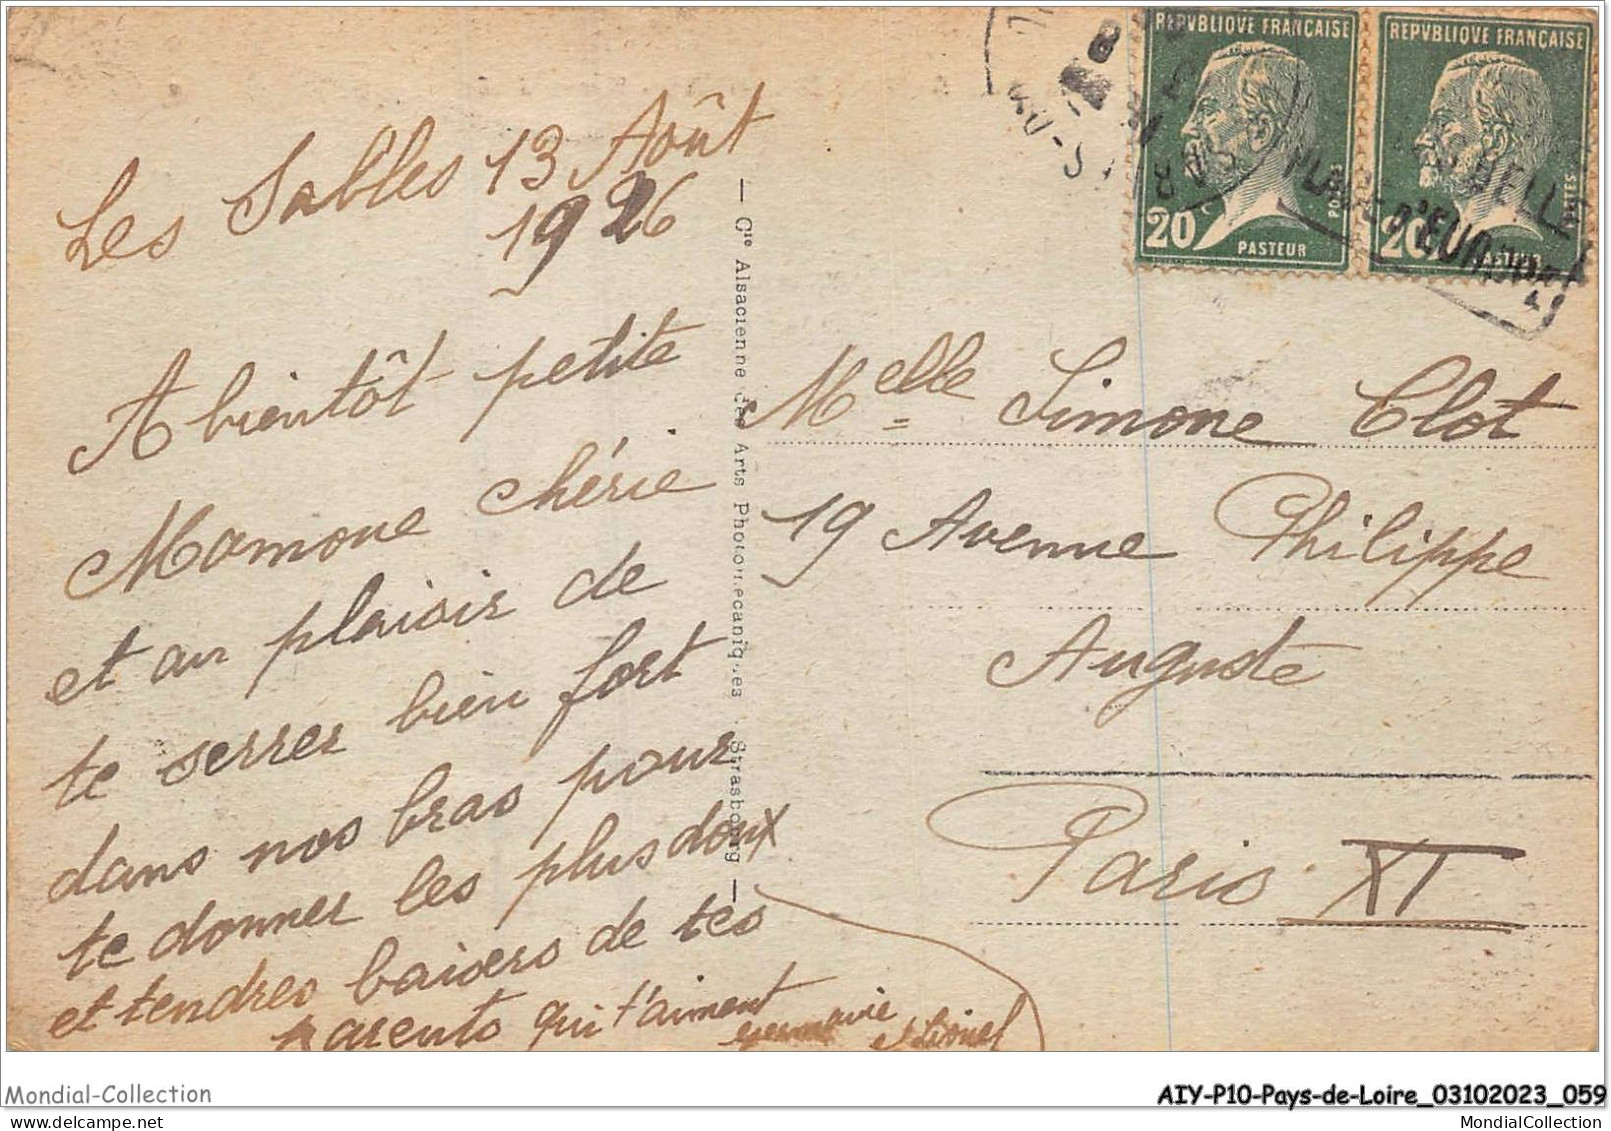 Les Sables 13 Août
1926
A bientôt petite
Mamone chérie
et au plaisir de
te serrer bien fort
dans nos bras pour
te donner les plus doux
et tendres baisers de tes
parents qui t'aiment
Germaine
et Lionel
Cie Alsacienne des Arts Photomécaniques Strasbourg
REPVBLIQVE FRANÇAISE
POSTES
20
PASTEUR
REPVBLIQVE FRANÇAISE
POSTES
20
PASTEUR
PLAGE D'EUROPE
Melle Simone Clot
19 Avenue Philippe
Auguste
Paris XI
Mondial-Collection
AIY-P10-Pays-de-Loire_03102023_059
MondialCollection